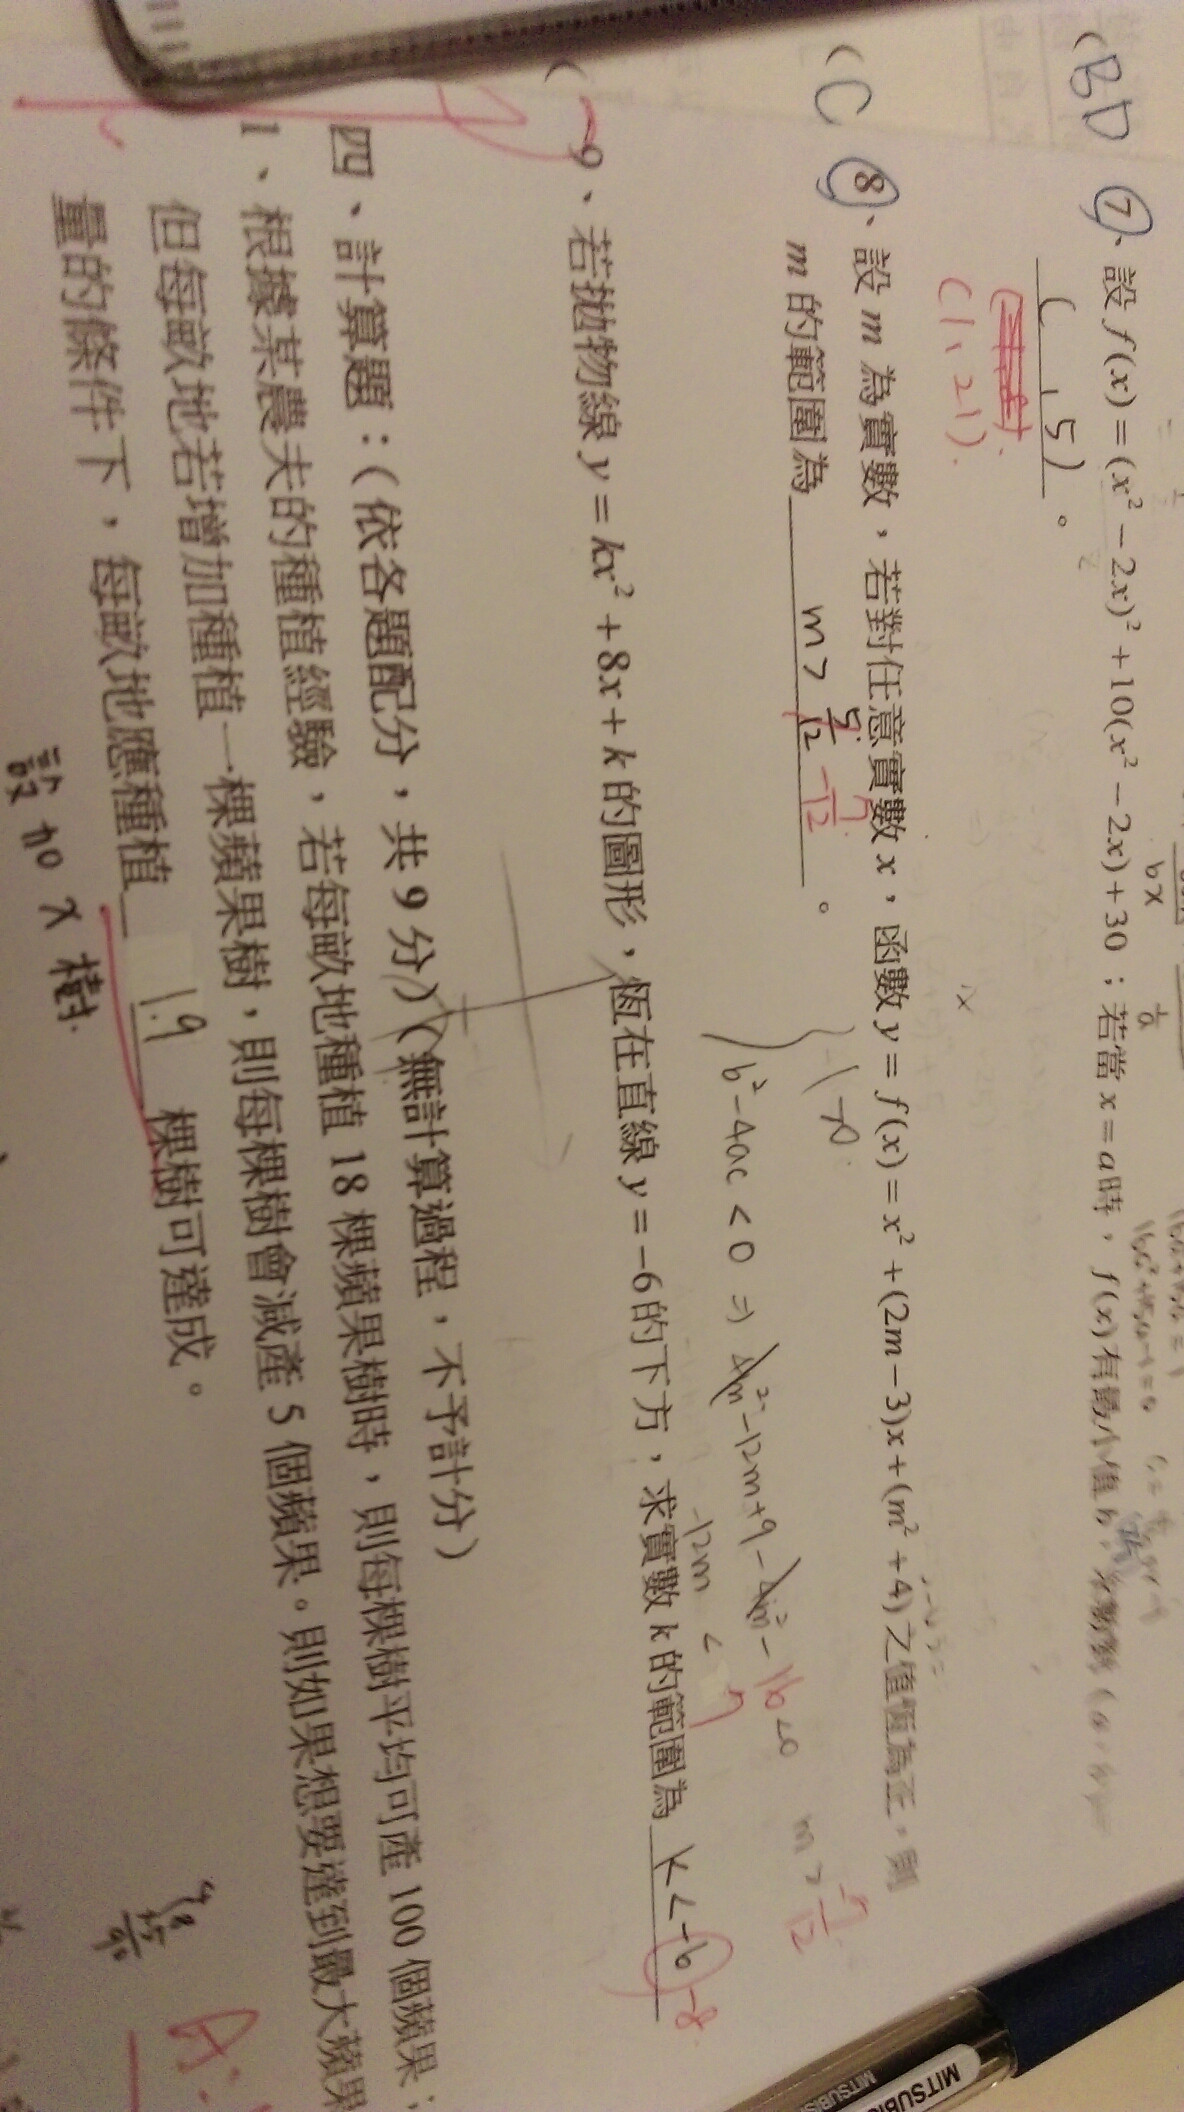 (BD ⑦、設 f(x)=(x²−2x)²+10(x²−2x)+30；若當 x=a時，f(x)有最小值b，
( 1, 5 )。
(1, 21).
(C ⑧、設 m 為實數，若對任意實數 x，函數 y=f(x)=x²+(2m−3)x+(m²+4)之值恆為正，則
m 的範圍為 m> 5/12 −7/12 。
1>0
b²−4ac<0 ⇒ 4m²−12m+9−4m²−16<0
−12m < 7
m> −7/12
( 9、若拋物線 y=kx²+8x+k 的圖形，恆在直線 y=−6的下方，求實數 k 的範圍為 k<−6 −8
四、計算題：(依各題配分，共 9 分) (無計算過程，不予計分)
1、根據某農夫的種植經驗，若每畝地種植 18 棵蘋果樹時，則每棵樹平均可產 100 個蘋果；
但每畝地若增加種植一棵蘋果樹，則每棵樹會減產 5 個蘋果。則如果想要達到最大蘋果
量的條件下，每畝地應種植 19 棵樹可達成。
設加 x 樹.
A:
MITSUBIS
MITSUBIS